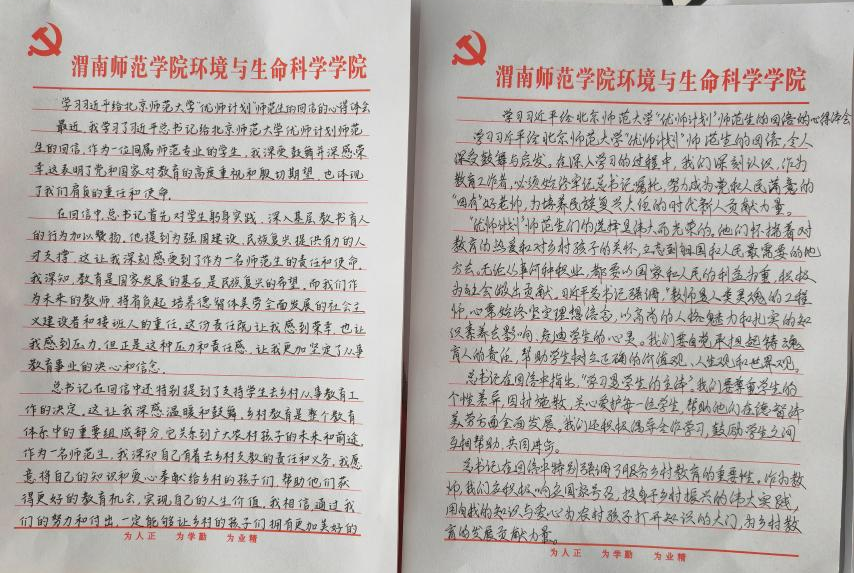 渭南师范学院环境与生命科学学院
学习习近平给北京师范大学"优师计划"师范生的回信的心得体会
最近,我学习了习近平总书记给北京师范大学优师计划师范
生的回信,作为一位同属师范专业的学生,我深受鼓舞并深感荣
幸,这表明了党和国家对教育的高度重视和殷切期望,也体现
了我们肩负的重任和使命。
在回信中,总书记首先对学生躬身实践,深入基层教书育人
的行为加以赞扬,他提到"为强国建设、民族复兴提供有力的人
才支撑",这让我深刻感受到了作为一名师范生的责任和使命。
我深知,教育是国家发展的基石,是民族复兴的希望,而我们作
为未来的教师,将肩负起培养德智体美劳全面发展的社会主
义建设者和接班人的重任,这份责任既让我感到荣幸,也让
我感到压力,但正是这种压力和责任感,让我更加坚定了从事
教育事业的决心和信念。
总书记在回信中还特别提到了支持学生去乡村从事教育工
作的决定,这让我深感温暖和鼓舞,乡村教育是整个教育
体系中的重要组成部分,它关系到广大农村孩子的未来和前途,
作为一名师范生,我深知自己有着去乡村支教的责任和义务,我愿
意将自己的知识和爱心奉献给乡村的孩子们,帮助他们获
得更好的教育机会,实现自己的人生价值,我相信通过我
们的努力和付出,一定能够让乡村的孩子们拥有更加美好的
为人正 为学勤 为业精
渭南师范学院环境与生命科学学院
学习习近平给北京师范大学"优师计划"师范生的回信的心得体会
学习习近平给北京师范大学"优师计划"师范生的回信,令人
深受鼓舞与启发,在深入学习的过程中,我们深刻认识,作为
教育工作者,必须始终牢记总书记嘱托,努力成为党和人民满意的
"四有"好老师,为培养民族复兴大任的时代新人贡献力量。
"优师计划"师范生们的选择是伟大而光荣的,他们怀揣着对
教育的热爱和对乡村孩子的关怀,立志到祖国和人民最需要的地
方去。无论从事何种职业,都要以国家和人民的利益为重,积极
为社会做出贡献。习近平总书记强调,"教师是人类灵魂的工程
师,心要始终坚定理想信念,以高尚的人格魅力和扎实的知
识素养去影响、感迪学生的心灵。我们要自觉承担起铸魂
育人的责任,帮助学生树立正确的价值观、人生观和世界观。
总书记在回信中指出,"学习是学生的主体"我们要尊重学生的
个性差异,因材施教,关心爱护每一位学生,帮助他们在德智体
美劳方面全面发展。我们还积极倡导合作学习,鼓励学生之间
互相帮助,共同进步。
总书记在回信中特别强调了服务乡村教育的重要性。作为教
师,我们应积极响应国家号召,投身于乡村振兴的伟大实践,
用自我的知识与爱心为农村孩子打开知识的大门,为乡村教
育的发展贡献力量。
为人正 为学勤 为业精